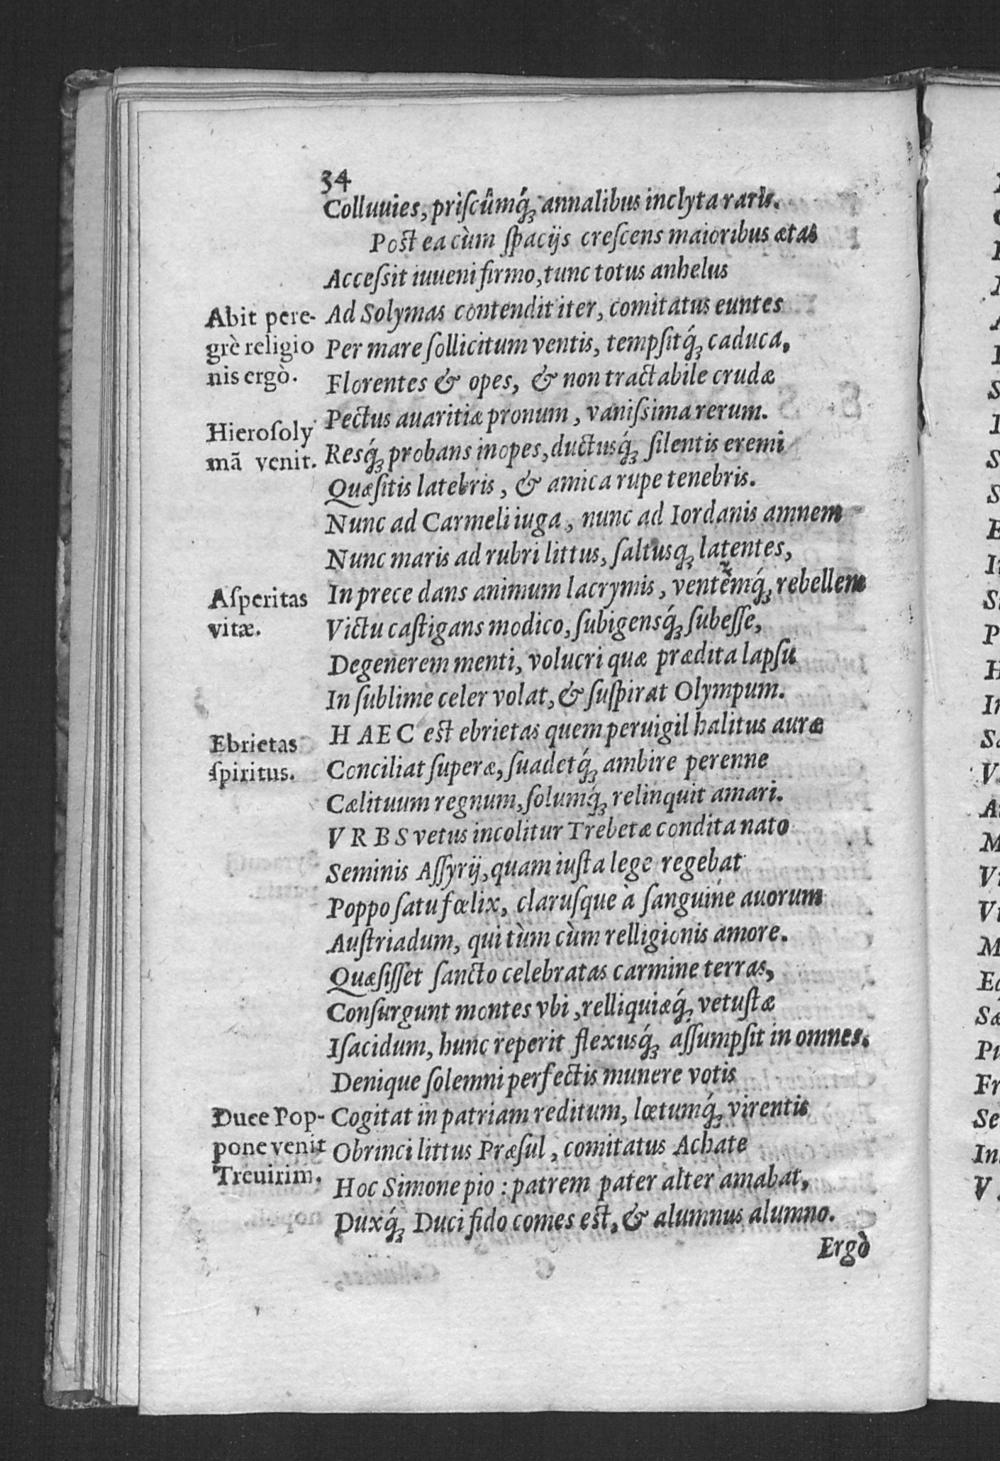 34
Colluuies, priſcûmq́ꝫ annalibus inclyta raris.
Poſt ea cùm ſpacijs creſcens maioribus ætas
Acceſsit iuueni firmo, tunc totus anhelus
Abit pere-
grè religio
nis ergò.
Ad Solymas contendit iter, comitatus euntes
Per mare ſollicitum ventis, tempſitq́ꝫ caduca,
Florentes & opes, & non tractabile crudæ
Pectus auaritiæ pronum, vaniſsima rerum.
Hieroſoly
mã venit.
Resq́ꝫ probans inopes, ductusq́ꝫ ſilentis eremi
Quæſitis latebris, & amica rupe tenebris.
Nunc ad Carmeli iuga, nunc ad Iordanis amnem
Nunc maris ad rubri littus, ſaltusqꝫ latentes,
Aſperitas
vitæ.
In prece dans animum lacrymis, ventẽmq́ꝫ rebellem
Victu caſtigans modico, ſubigensq́ꝫ ſubeſſe,
Degenerem menti, volucri quæ prædita lapſu
In ſublime celer volat, & ſuſpirat Olympum.
Ebrietas
ſpiritus.
HAEC eſt ebrietas quem peruigil halitus auræ
Conciliat ſuperæ, ſuadetq́ꝫ ambire perenne
Cælituum regnum, ſolumq́ꝫ relinquit amari.
VRBS vetus incolitur Trebetæ condita nato
Seminis Aſſyrij, quam iuſta lege regebat
Poppo ſatu fœlix, claruſque à ſanguine auorum
Auſtriadum, qui tùm cùm relligionis amore.
Quæſiſſet ſancto celebratas carmine terras,
Conſurgunt montes vbi, relliquiæq́ꝫ vetuſtæ
Iſacidum, hunc reperit flexusq́ꝫ aſſumpſit in omnes.
Denique ſolemni perfectis munere votis
Duce Pop-
pone venit
Treuirim.
Cogitat in patriam reditum, lœtumq́ꝫ virentis
Obrinci littus Præſul, comitatus Achate
Hoc Simone pio : patrem pater alter amabat,
Duxq́ꝫ Duci fido comes eſt, & alumnus alumno.
Ergò